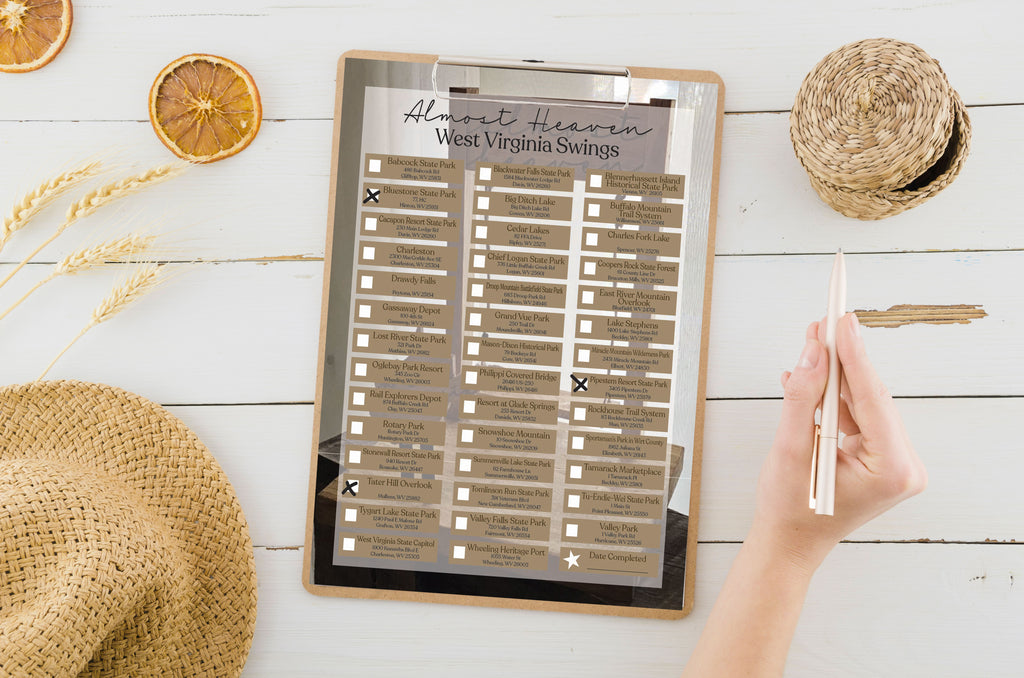 Almost Heaven
West Virginia Swings
Babcock State Park
486 Babcock Rd
Clifftop, WV 25831
Bluestone State Park
Hinton, WV 25951
Cacapon Resort State Park
Charleston
2300 MacCorkle Ave SE
Charleston, WV 25304
Drawdy Falls
Peytona, WV 25154
Gassaway Depot
Gassaway, WV 26624
Lost River State Park
321 Park Dr
Mathias, WV 26812
Oglebay Park Resort
Wheeling, WV 26003
Rail Explorers Depot
Rotary Park
Rotary Park Dr
Huntington, WV 25705
Stonewall Resort State Park
940 Resort Dr
Roanoke, WV 26447
Tater Hill Overlook
Mullens, WV 25882
Tygart Lake State Park
1240 Paul E Malone Rd
Grafton, WV 26354
West Virginia State Capitol
1900 Kanawha Blvd E
Charleston, WV 25305
Blackwater Falls State Park
1584 Blackwater Lodge Rd
Davis, WV 26260
Big Ditch Lake
Big Ditch Lake Rd
Cowen, WV 26206
Cedar Lakes
82 FFA Drive
Ripley, WV 25271
Chief Logan State Park
Logan, WV 25601
Droop Mountain Battlefield State Park
683 Droop Park Rd
Hillsboro, WV 24946
Grand Vue Park
250 Trail Dr
Moundsville, WV 26041
Mason-Dixon Historical Park
79 Buckeye Rd
Core, WV 26541
Philippi Covered Bridge
Philippi, WV 26416
Resort at Glade Springs
255 Resort Dr
Daniels, WV 25832
Snowshoe Mountain
10 Snowshoe Dr
Snowshoe, WV 26209
Summersville Lake State Park
Summersville, WV 26651
Tomlinson Run State Park
New Cumberland, WV 26047
Valley Falls State Park
720 Valley Falls Rd
Fairmont, WV 26554
Wheeling Heritage Port
1055 Water St
Wheeling, WV 26003
Blennerhassett Island
Historical State Park
Buffalo Mountain
Trail System
Charles Fork Lake
Spencer, WV 25276
Coopers Rock State Forest
61 County Line Dr
Bruceton Mills, WV 26525
East River Mountain
Overlook
Bluefield, WV 24701
Lake Stephens
1400 Lake Stephens Rd
Beckley, WV 25801
Miracle Mountain Wilderness Park
Pipestem Resort State Park
Rockhouse Trail System
Man, WV 25635
Sportsman's Park in Wirt County
Elizabeth, WV 26143
Tamarack Marketplace
1 Tamarack Pl
Beckley, WV 25801
Tu-Endie-Wei State Park
1 Main St
Point Pleasant, WV 25550
Valley Park
1 Valley Park Rd
Hurricane, WV 25526
Date Completed